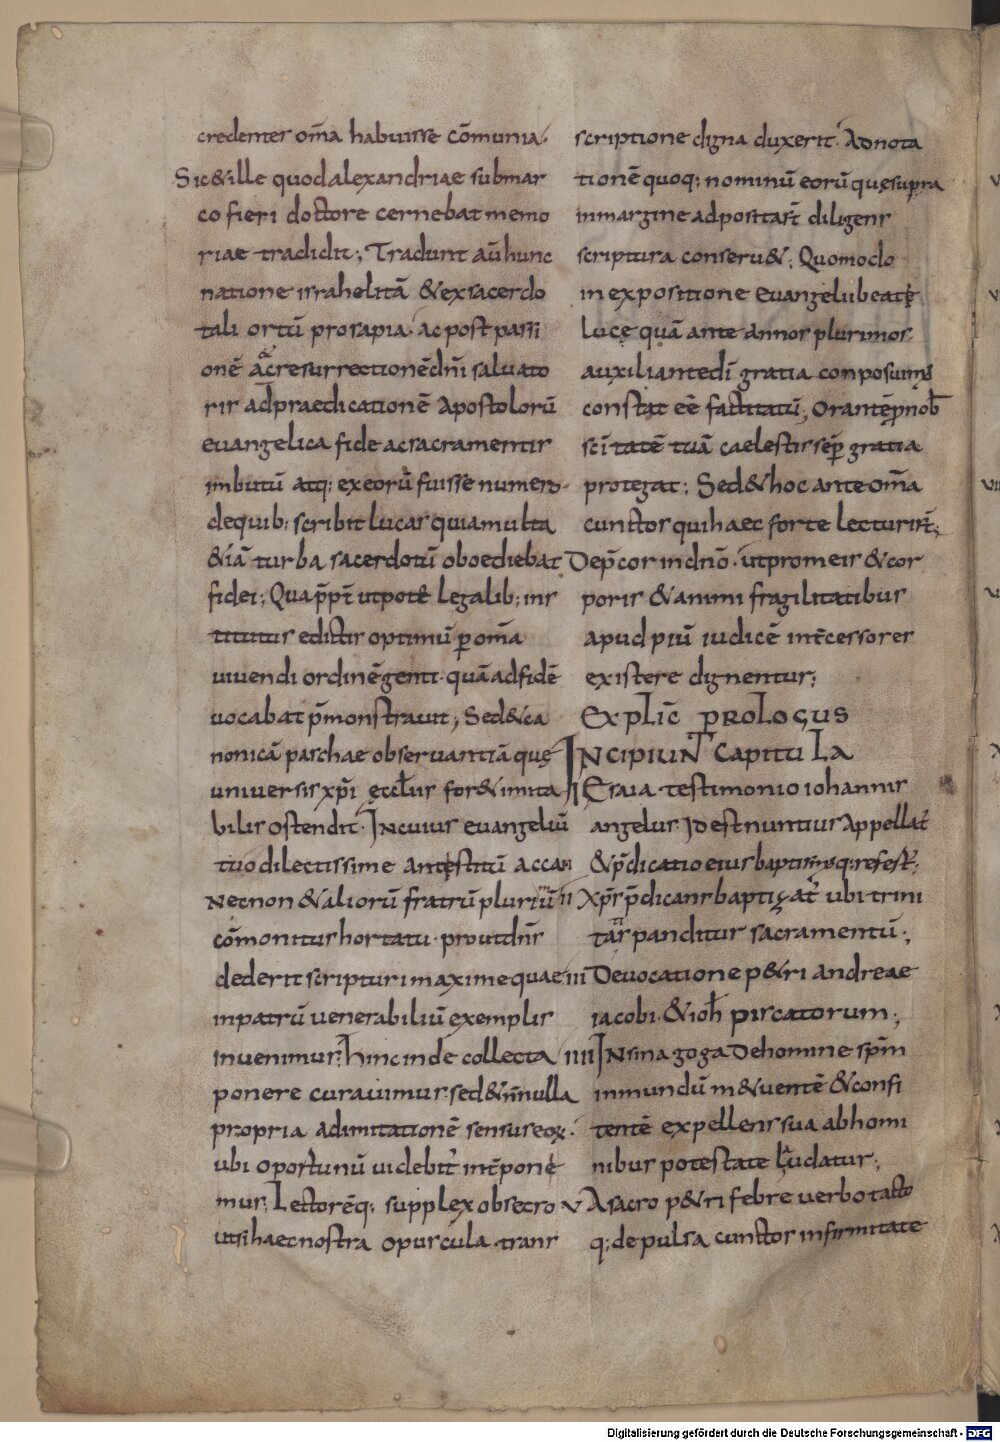 credentes om̄a habuisse cōmunia.
Sic & ille quod alexandriae sub mar
co fieri doctore cernebat memo
riae tradidit; Tradunt aū hunc
natione israhelitā & ex sacerdo
tali ortū prosapia. ac post passi
onē ac resurrectionē dn̄i saluato
ris ad praedicationē apostolorū
euangelica fide ac sacramentis
imbutū atq; ex eorū fuisse numero.
de quib; scribit lucas quia multa
& iā turba sacerdotū oboediebat
fidei; Qua pp̄t utpote legalib; ins
titutus edictis optimū p om̄a
uiuendi ordinē genti. quā ad fidē
uocabat p̄monstrauit; Sed & ca
nonicā paschae obseruantiā quę
uniuersis xp̄i ęccl̄is for& imita
bilis ostendit. In cuius euangeliū
tuo dilectissime antestitū acca
Necnon & aliorū fratrū pluriū
cōmonitus hortatu. prout dn̄s
dederit scripturi maxime quae
in patrū uenerabiliū exemplis
inuenimus. hinc inde collecta
ponere curauimus. sed & nn̄ulla
propria ad imitationē sensus eoꝝ.
ubi oportunū uidebit̄ int̄pone
mus; Lectorēq; supplex obsecro
ut si haec nostra opuscula trans
scriptione digna duxerit. Adnota
tionē quoq; nominū eorū quę supra
in margine adposita s̄t diligens
scriptura conseru&; Quomodo
in expositione euangelii beati
lucę quā ante annos plurimos.
auxiliante dī gratia conposuimus
constat eē factitatū; Orantē p nob̄
sc̄itatē tuā caelestis sēp gratia
protegat; Sed & hoc ante om̄a
cunctos qui haec forte lecturi s̄t;
Dep̄cor in dn̄o. ut pro meis & cor
poris & animi fragilitatibus
apud piū iudicē int̄cessores
existere dignentur;
Explic̄ prologus
Incipiunt capitula
I Esaia testimonio iohannis
angelus. Id est nuntius appellat̄
& p̄dicatio eius baptismusq; refert̄;
II Xp̄s p̄dicans baptizat̄ ubi trini
tatis panditur sacramentū;
III De uocatione p&ri andreae
iacobi. & ioh̄ piscatorum;
IIII In sinagoga de homine sp̄m
inmundū m& uentē & confi
tentē expellens sua ab homi
nibus potestate laudatur;
V A sacro p&ri febre uerbo tacto
q; depulsa cunctos infirmitate
Digitalisierung gefördert durch die Deutsche Forschungsgemeinschaft - DFG